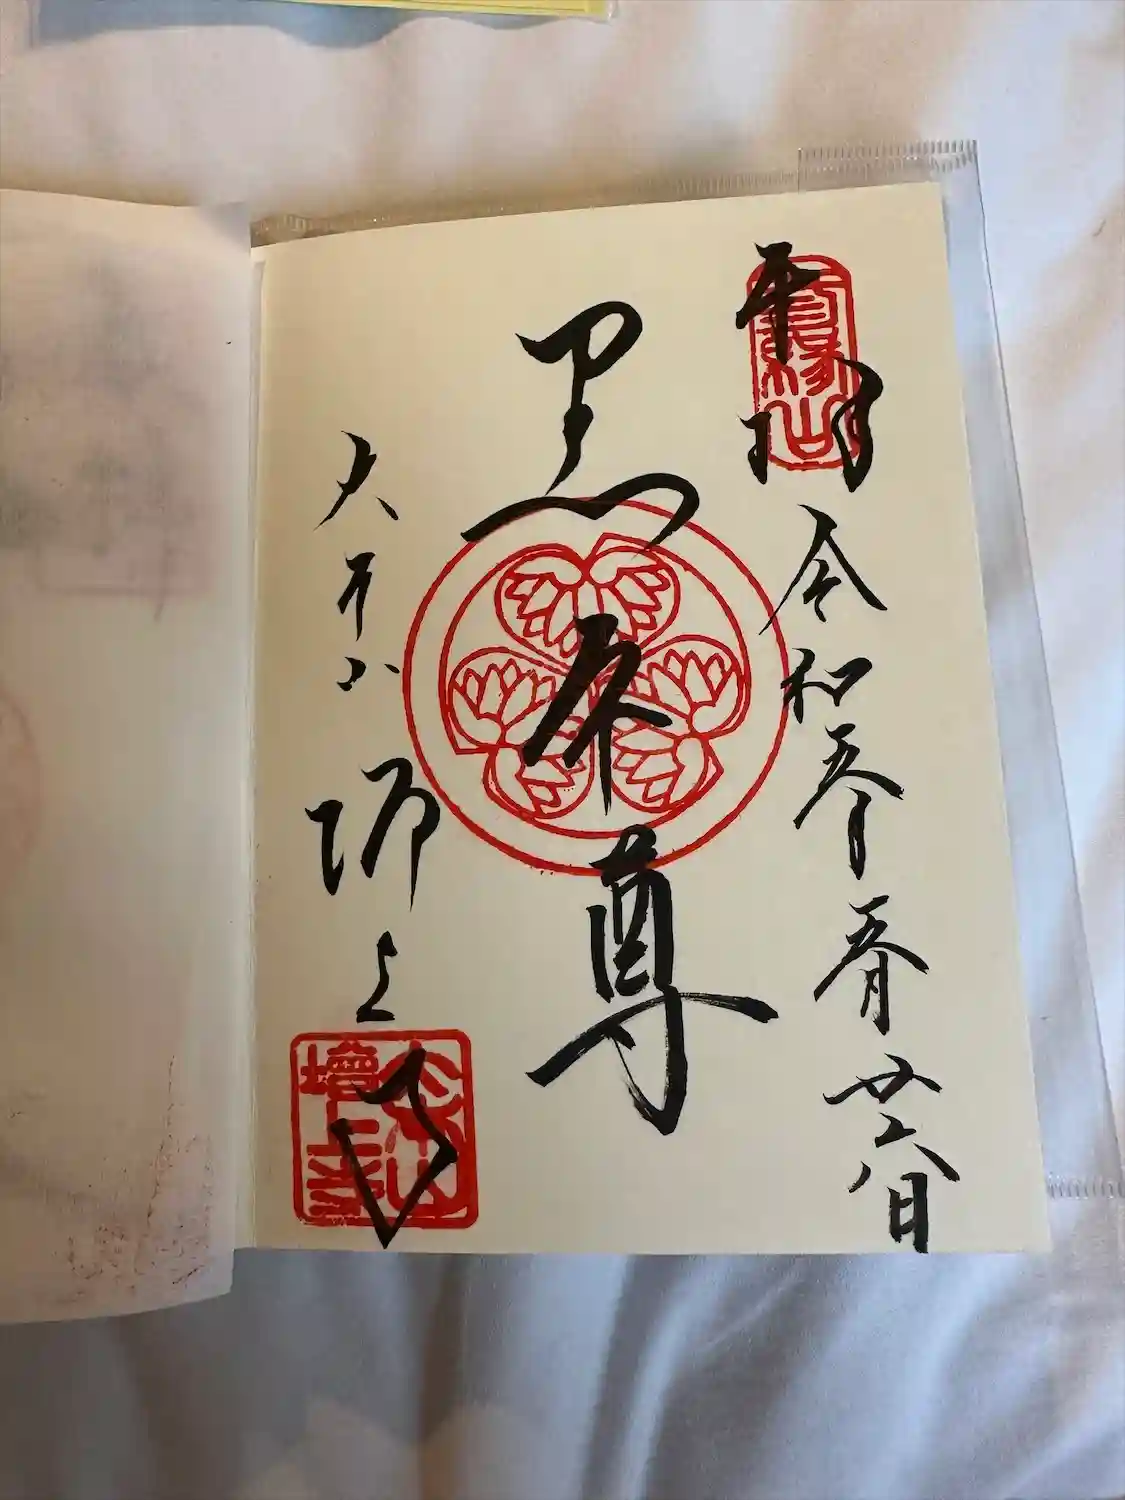 奉拝 令和五年五月廿六日
黒本尊
大本山 増上寺
三縁山